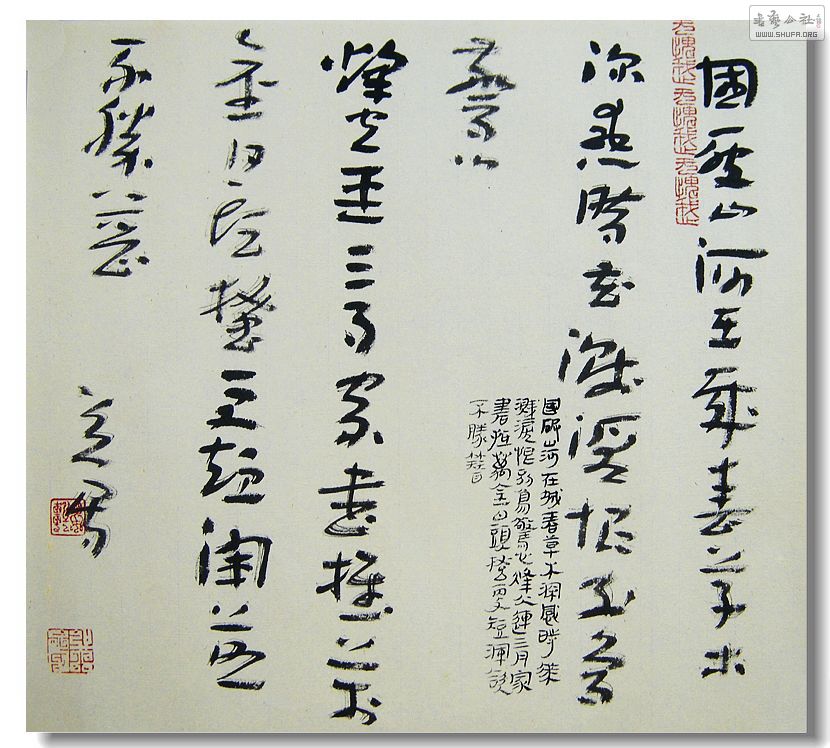 書藝公社
WWW.SHUFA.ORG
國破山河在城春草木
深感時花濺淚恨別鳥
驚心
烽火連三月家書抵萬
金白頭搔更短渾欲
不勝簪
國破山河在城春草木深感時花
濺淚恨別鳥驚心烽火連三月家
書抵萬金白頭搔更短渾欲
不勝簪